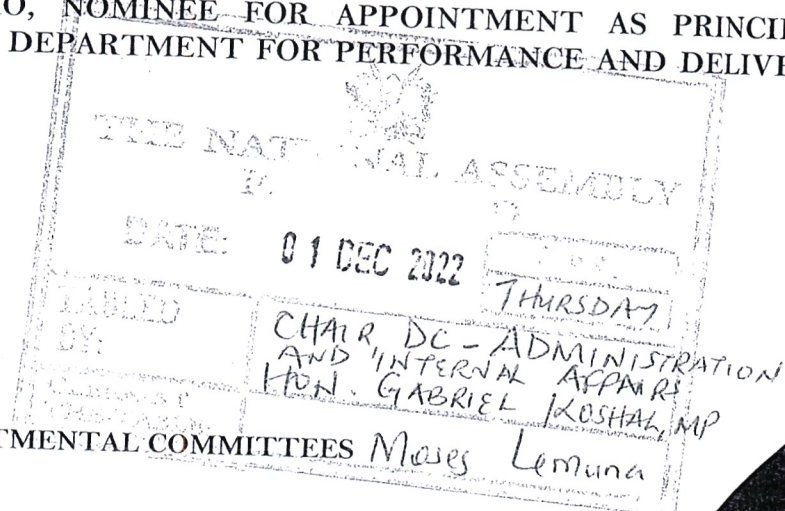 NOMINEE FOR APPOINTMENT AS
DEPARTMENT FOR PERFORMANCE AND
THE NAT NAL ASSEMBLY
DATE: 01 DEC 2022
THURSDAY
TABLED BY:
CHAIR, DC - ADMINISTRATION
AND INTERNAL AFFAIRS
HON. GABRIEL KOSHAL, MP
COMMITTEES Moses Lemuna